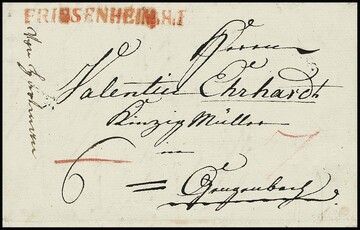 FRIESENHEIM.R.I
Herrn
Valentin Ehrhardt
Kinzig Müller
in
6 = Gengenbach
Von